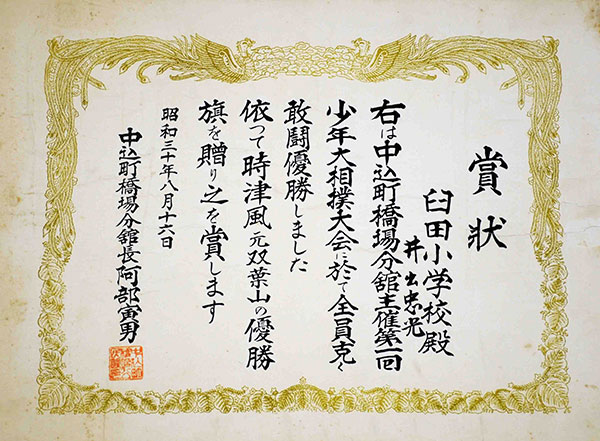 賞状
臼田小学校殿
井出忠光
右は中込町橋場分舘主催第一回
少年大相撲大会に於て全員克く
敢闘優勝しました
依つて時津風元双葉山の優勝
旗を贈り之を賞します
昭和三十年八月十六日
中込町橋場分舘長阿部寅男